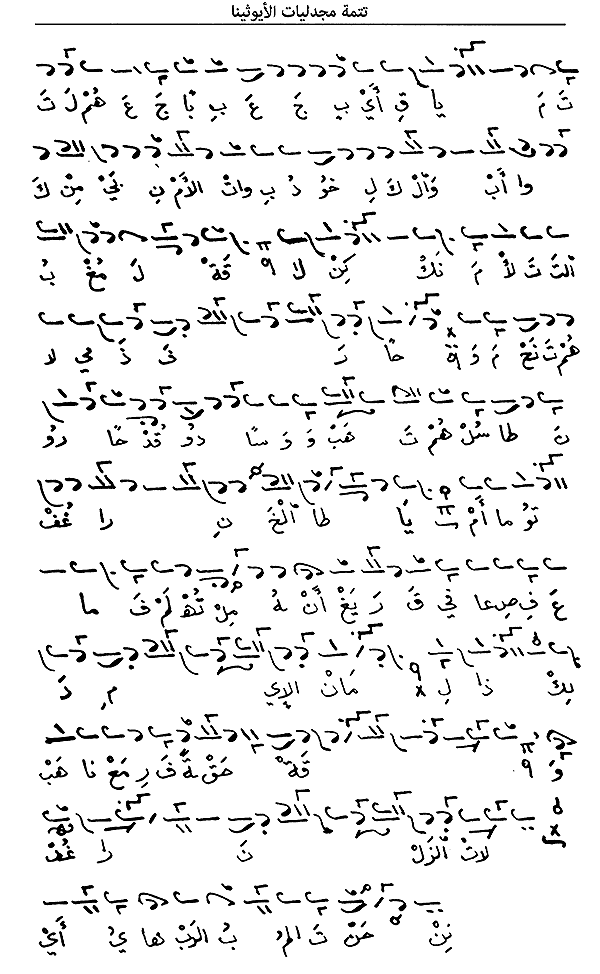 تتمة مجدليات الأيوثينا
تَ مَ يا قِ أَيْ بِ جَ عَ بِ بًا جَ عَ هُمْ لَ تَ
وا أَبْ وَالْ كَ لِ خُو دُ بِ واتْ الأَمْ نِ بَيْ مِنْ كَ
التَ تَ لأْ مَ نَكْ كِنْ لا قَةْ لَ مُغْ بُ
هُمْ تَ نَعْ مَ وَ حًا رَ فَ ذَ مي لا
نَ طا سُلْ هُمْ تَ هَبْ وَ وَ سًا دو قُدْ حًا رو
تو ما أَمْ يًا طا الْخَ نِ را غُفْ
عَ فِ صِدعا في قَ رَ يَغْ أَنْ هُ مِنْ تُهْ لَمْ فَ ما
بِكْ ذا لِ مَانْ الإي مِ دَ
وَ قَةْ حَقْ ةً فَ رِ مَعْ نا هَبْ
لاتْ الزَلْ نَ را غُفْ
نِنْ حَنْ تَ المُ بُ الرَبْ ها يُ أَيْ